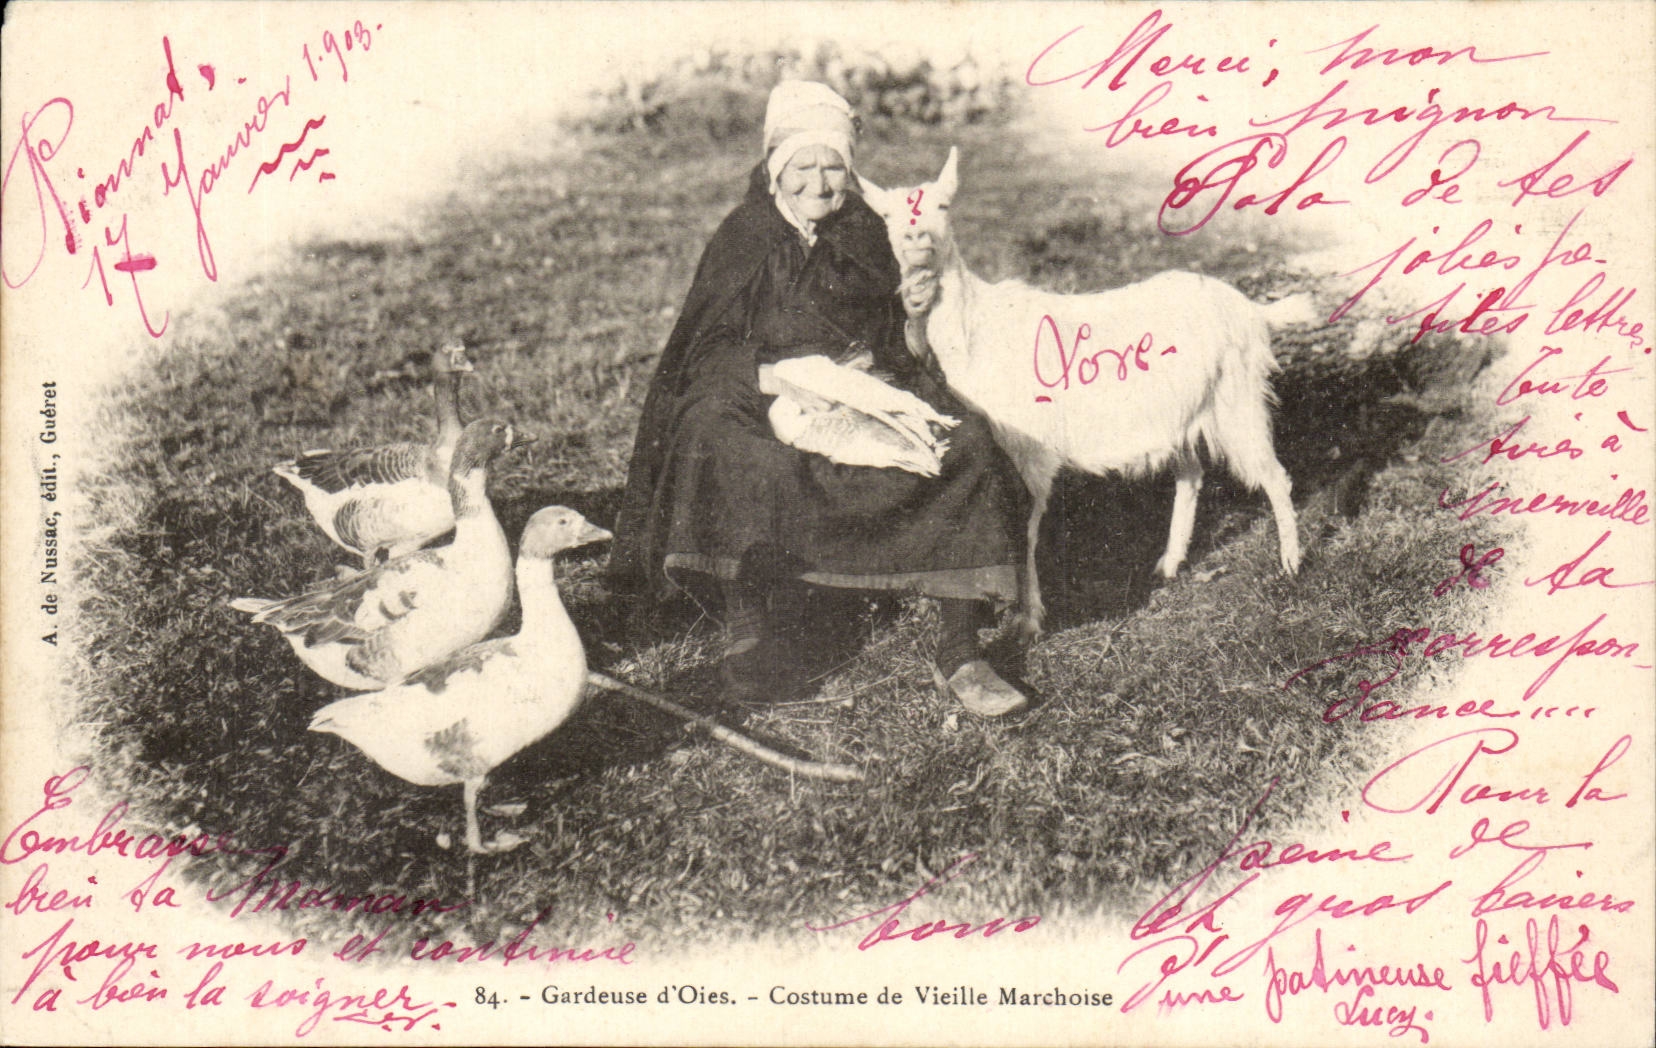 Pionnat,
17 Janvier 1.903.
Merci, mon
bien mignon
Polo de tes
jolies pe-
tites lettres.
Toute
à
merveille
de ta
correspon-
dance....
Pour la
peine de
bons et gros baisers
d'une patineuse fieffée
Lucy.
?
Embrasse
bien ta Maman
pour nous et continue
à bien la soigner.
A. de Nussac, édit., Guéret
84. - Gardeuse d'Oies. - Costume de Vieille Marchoise